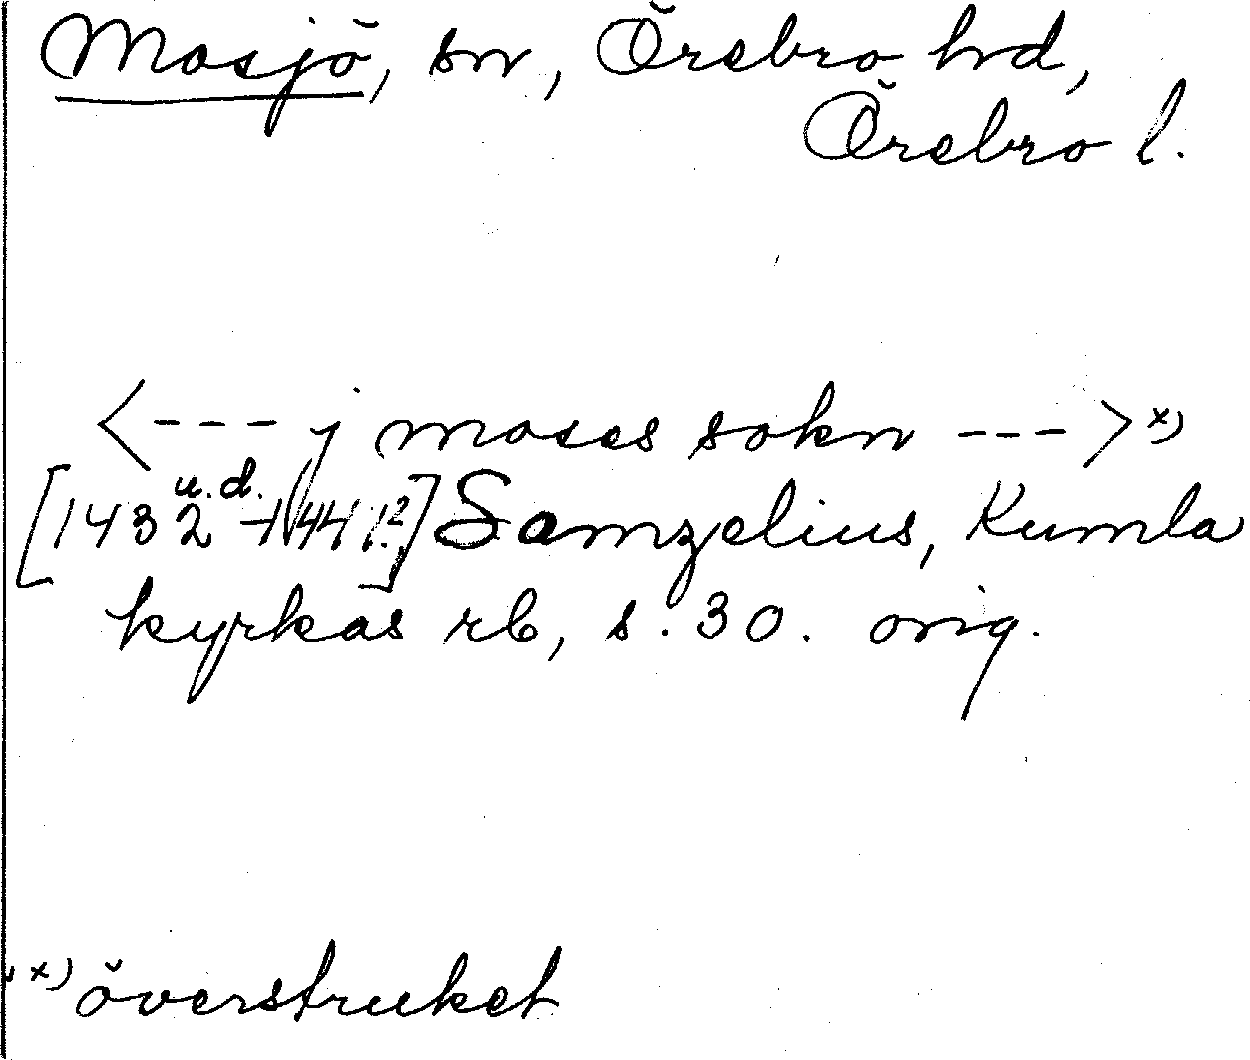 Mosjö, sn, Örebro hrd,
Örebro l.
<--- j moses sokn --->x)
[1432 u.d. Samzelius, Kumla
kyrkas rb, s. 30. orig.
x) överstruket